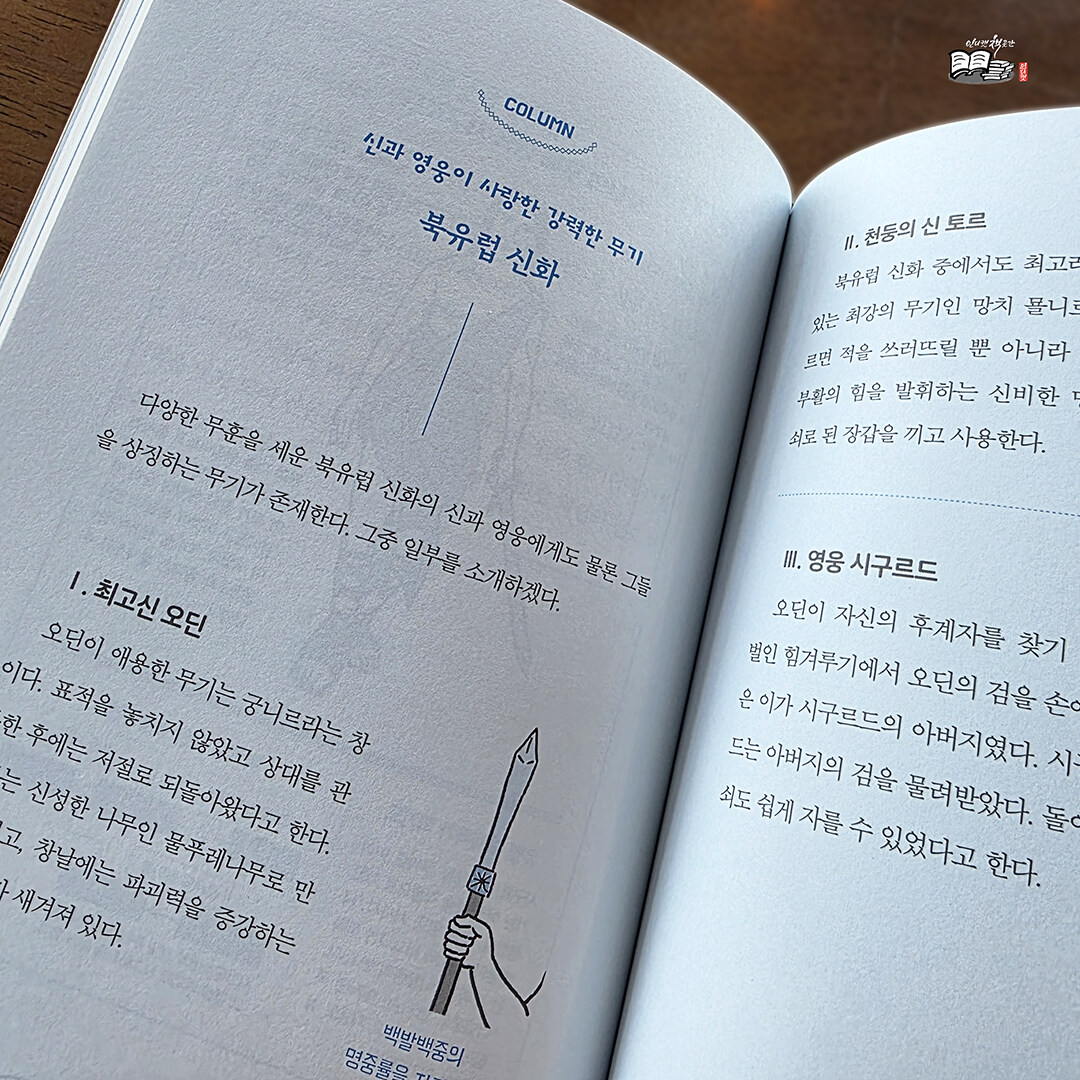 COLUMN
신과 영웅이 사랑한 강력한 무기
북유럽 신화
다양한 무훈을 세운 북유럽 신화의 신과 영웅에게도 물론 그들
을 상징하는 무기가 존재한다. 그중 일부를 소개하겠다.
Ⅰ. 최고신 오딘
오딘이 애용한 무기는 궁니르라는 창
이다. 표적을 놓치지 않았고 상대를 관
한 후에는 저절로 되돌아왔다고 한다.
는 신성한 나무인 물푸레나무로 만
고, 창날에는 파괴력을 증강하는
새겨져 있다.
백발백중의
명중률을
Ⅱ. 천둥의 신 토르
북유럽 신화 중에서도
있는 최강의 무기인 망치
르면 적을 쓰러뜨릴 뿐 아니라
부활의 힘을 발휘하는 신비한
쇠로 된 장갑을 끼고 사용한다.
Ⅲ. 영웅 시구르드
오딘이 자신의 후계자를 찾기
벌인 힘겨루기에서 오딘의 검을
은 이가 시구르드의 아버지였다.
드는 아버지의 검을 물려받았다.
쇠도 쉽게 자를 수 있었다고 한다.